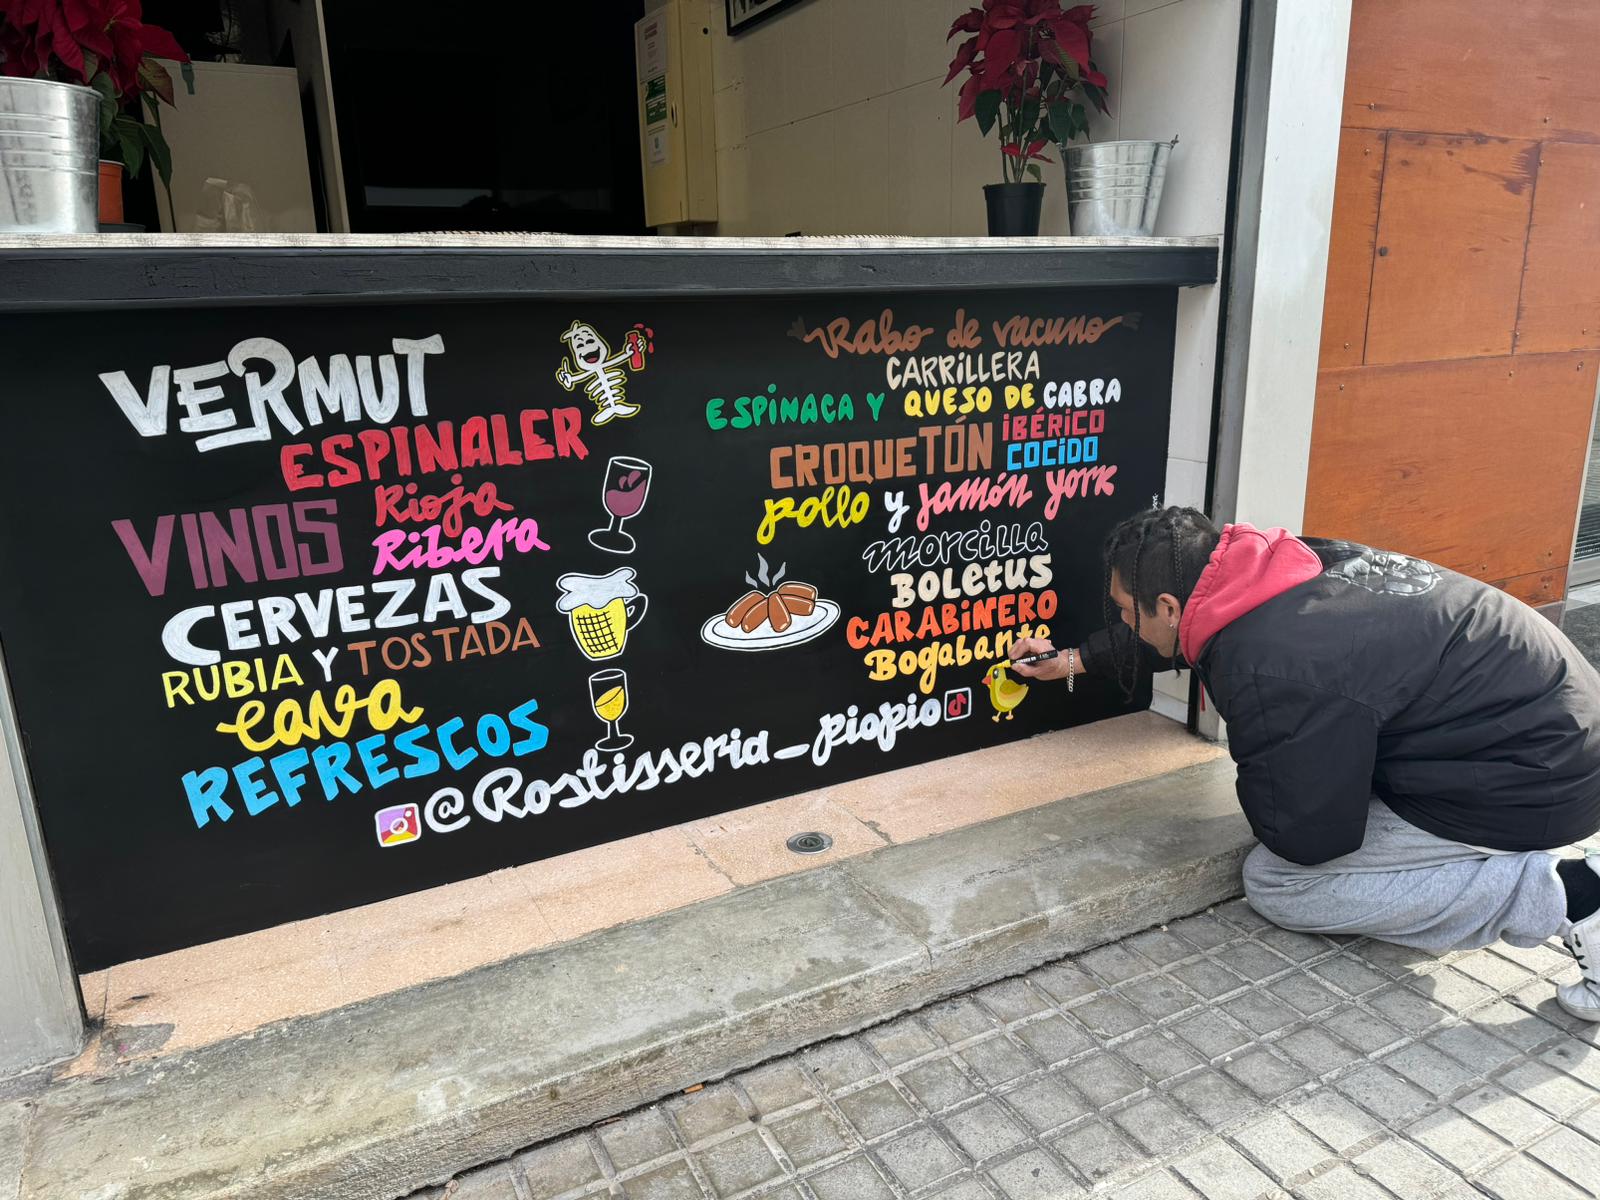 VERMUT
ESPINALER
VINOS Rioja
Ribera
CERVEZAS
RUBIA Y TOSTADA
Cava
REFRESCOS
Rabo de vacuno
CARRiLLERA
ESPiNACA Y QUESO DE CABRA
CROQUETÓN iBÉRiCO
COCiDO
pollo y jamón york
morcilla
BOLetus
CARABiNERO
Bogabante
@Rostisseria_piopio